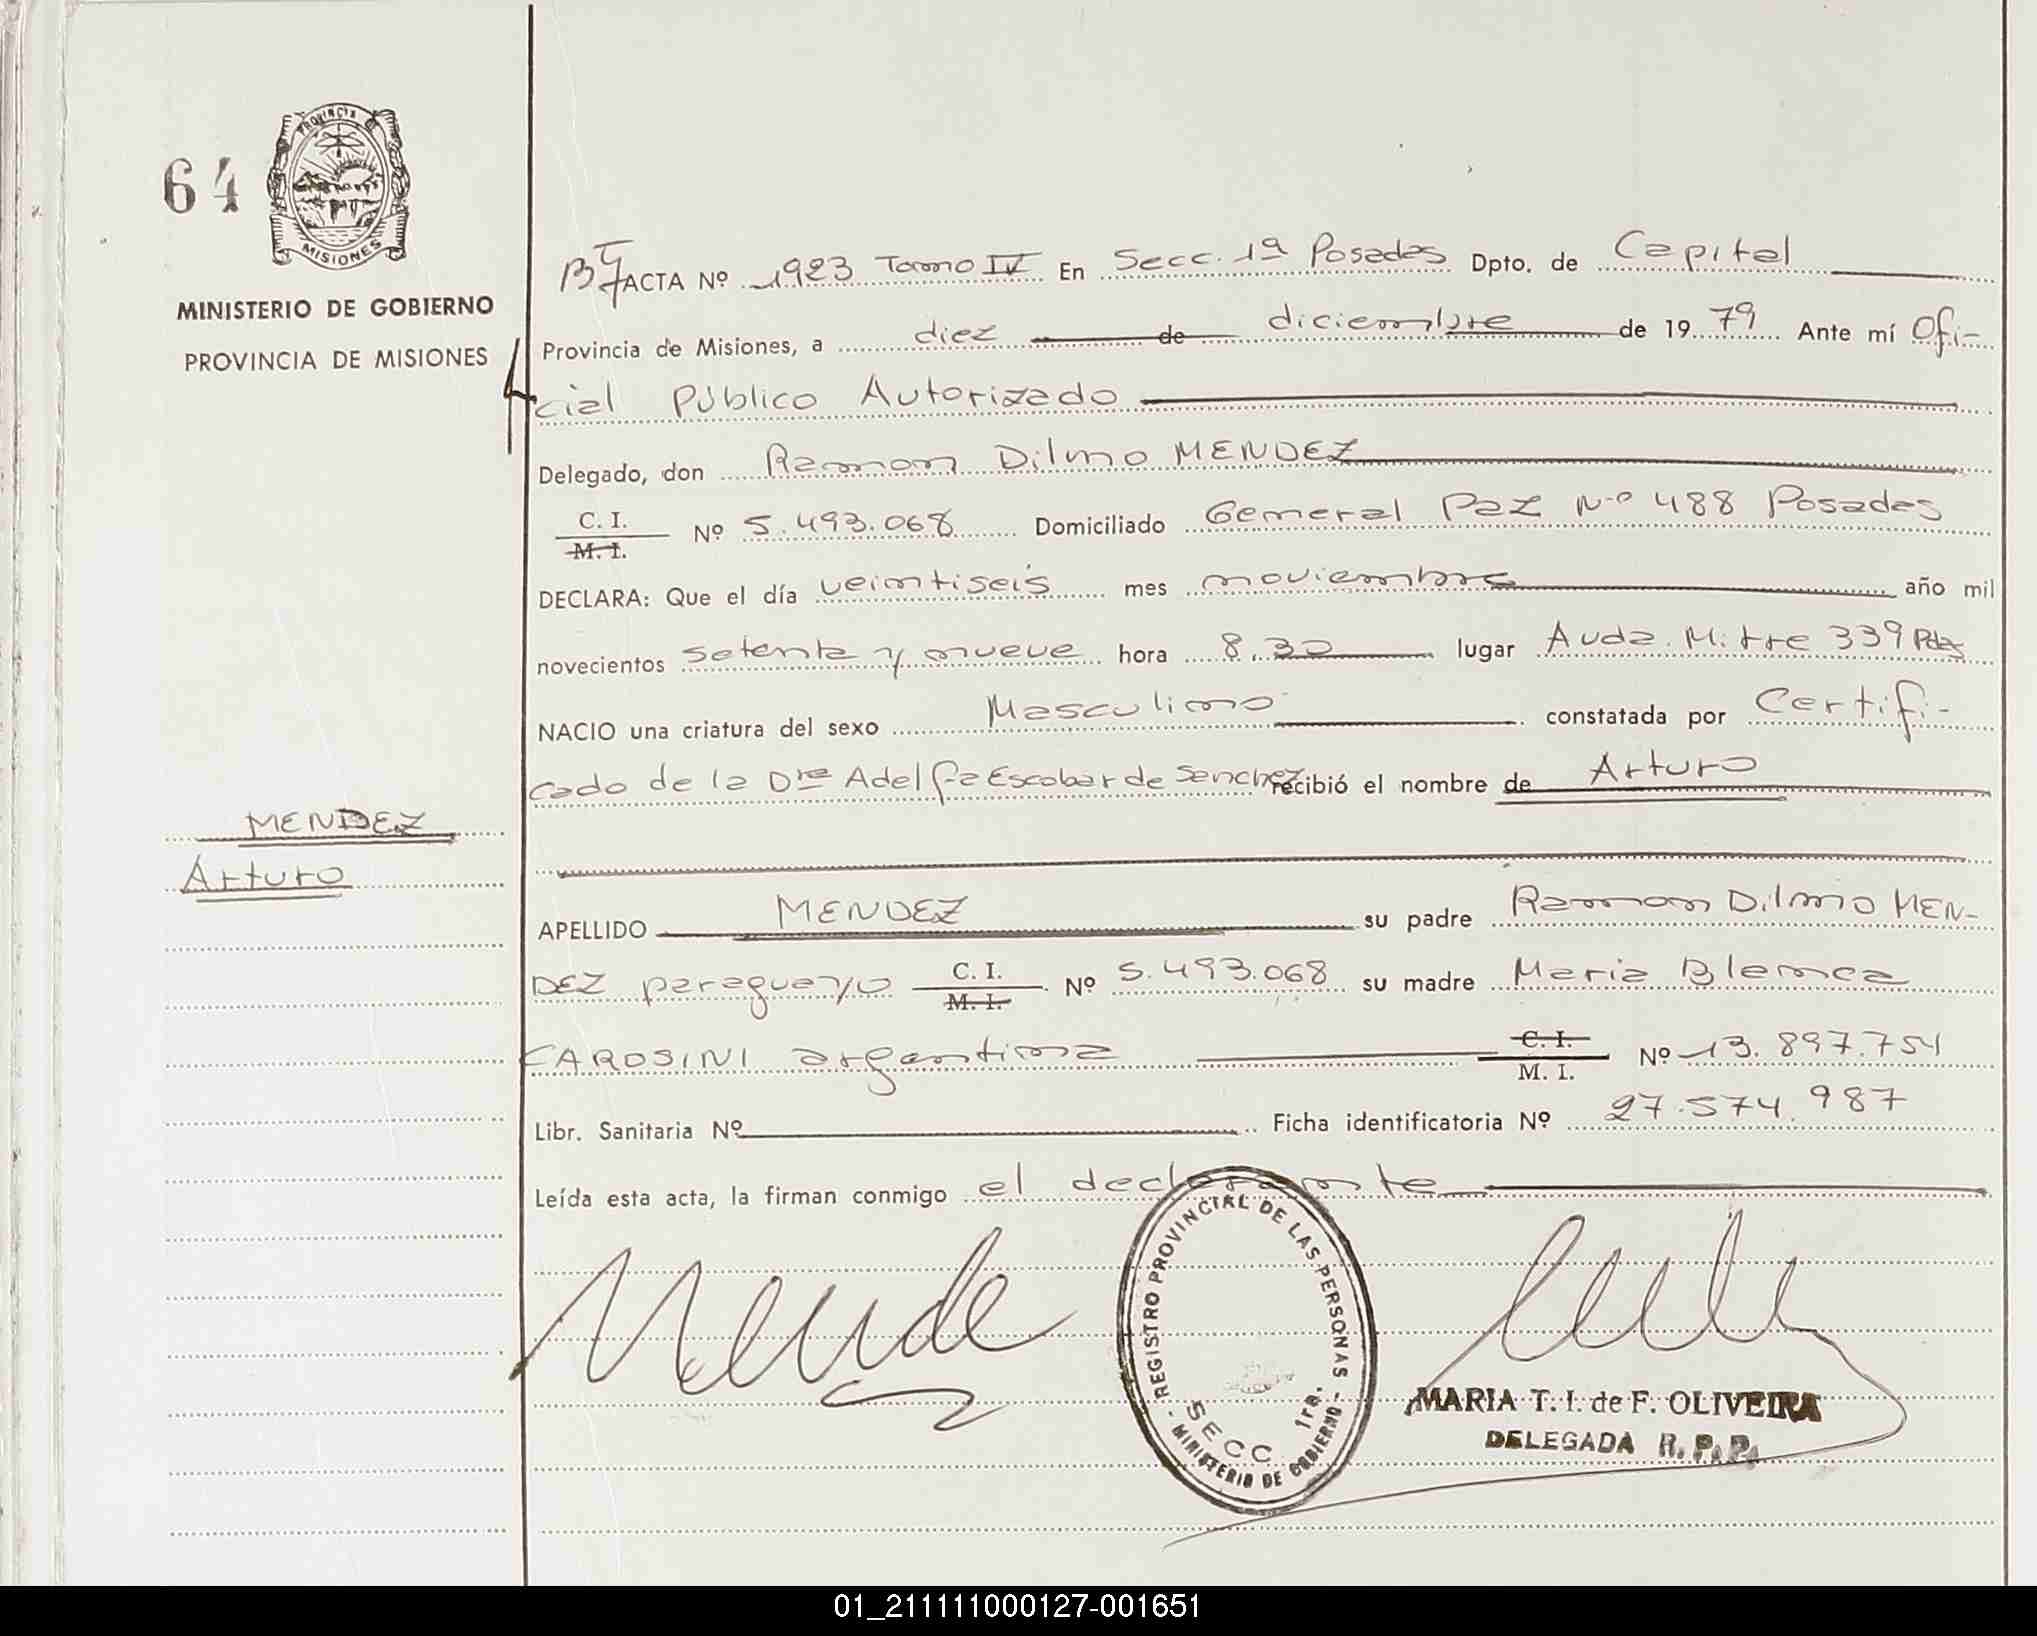 64
PROVINCIA DE
MISIONES
MINISTERIO DE GOBIERNO
PROVINCIA DE MISIONES
ACTA Nº 1923 Tomo IV En Secc. 1ª Posadas Dpto. de Capital
Provincia de Misiones, a diez de diciembre de 1979 Ante mí Ofi-
cial Público Autorizado
Delegado, don Ramon Dilmo MENDEZ
C. I.
M. I. Nº 5.493.068 Domiciliado General Paz Nº 488 Posadas
DECLARA: Que el día veintiseis mes noviembre año mil
novecientos setenta y nueve hora 8,30 lugar Avda. Mitre 339 Pdas
NACIO una criatura del sexo Masculino constatada por Certifi-
cado de la Dra Adelfa Escobar de Sanchez recibió el nombre de Arturo
MENDEZ
Arturo
APELLIDO MENDEZ su padre Ramon Dilmo MEN-
DEZ paraguayo C. I.
M. I. Nº 5.493.068 su madre Maria Blanca
CAROSINI argentina C. I.
M. I. Nº 13.897.751
Libr. Sanitaria Nº Ficha identificatoria Nº 27.574.987
Leída esta acta, la firman conmigo el declarante
REGISTRO PROVINCIAL DE LAS PERSONAS
SECC 1ra.
MINISTERIO DE GOBIERNO
MARIA T. I. de F. OLIVEIRA
DELEGADA R. P. P.
01_211111000127-001651